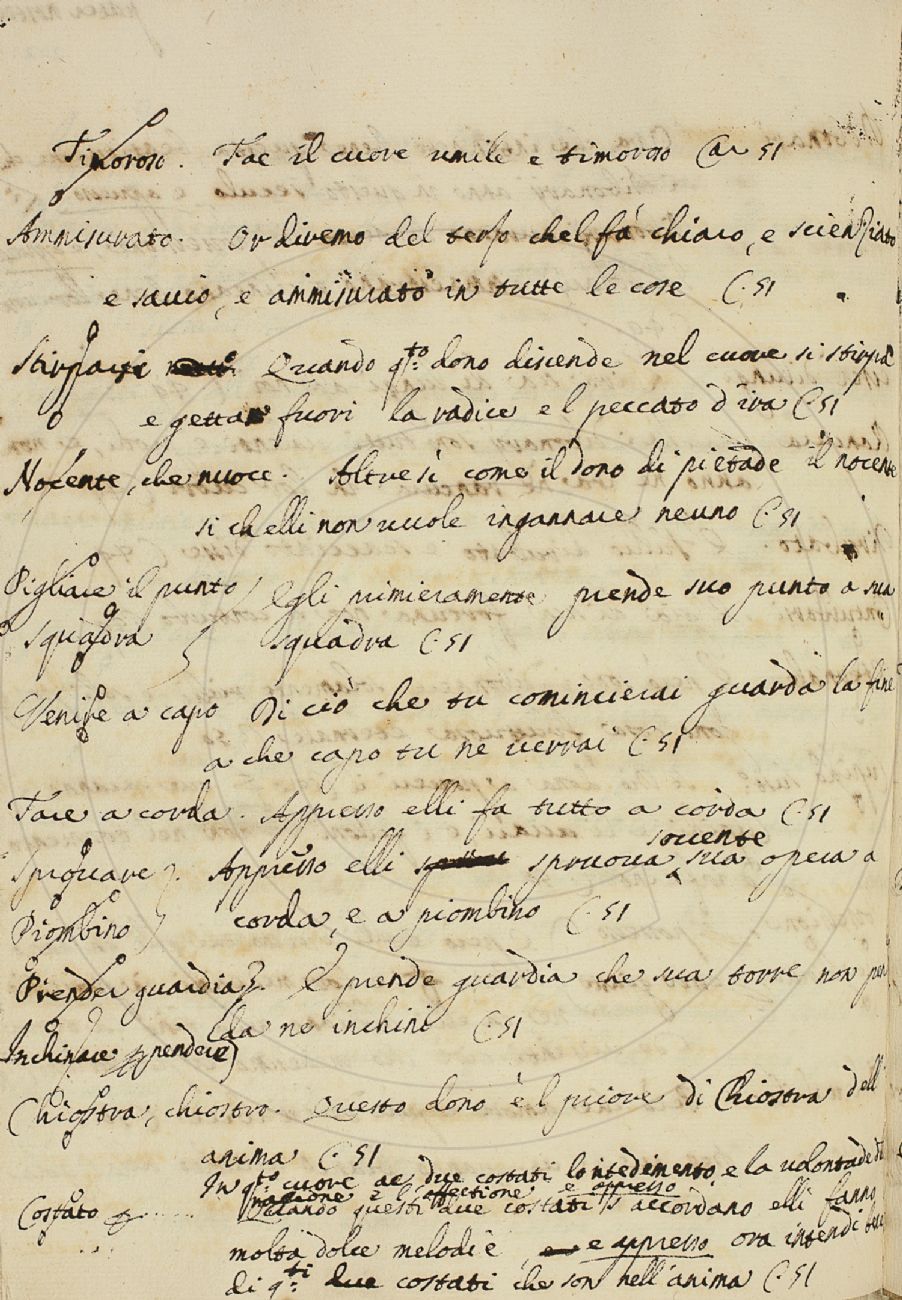 Timoroso. Fae il cuore umile e timoroso Car 51
Ammisurato. Or diremo del terso chel fá chiaro, e scienziato
e savio, e ammisurato in tutte le cose C. 51
Stirpare Quando q.to dono discende nel cuore si stirpa
e getta fuori la radice e l peccato d'ira C. 51
Nocente, che nuoce. Altresì come il dono di pietade il nocente
si ch elli non vuole ingannare neuno C. 51
Pigliare il punto Egli primieramente prende suo punto a sua
squadra squadra C. 51
Venire a capo Di ciò che tu comincierai guarda la fine
a che capo tu ne verrai C. 51
Fare a corda. Appresso elli fa tutto a corda C. 51
sovente
Sprovare Appresso elli sprova sua opera a
Piombino corda, e a piombino C. 51
Prender guardia E prende guardia che sua torre non pen
da ne inchini C. 51
Inchinare p pendere
Chiostra, chiostro. Questo dono è l priore di Chiostra dell
anima C. 51
In q.to cuore ae due costati lo ntedimento, e la volontade
ragione e l affectione e appresso
Costato Quando questi due costati s accordano elli fanno
molta dolce melodie e appresso ora intendi
di q.ti due costati che son nell'anima C. 51